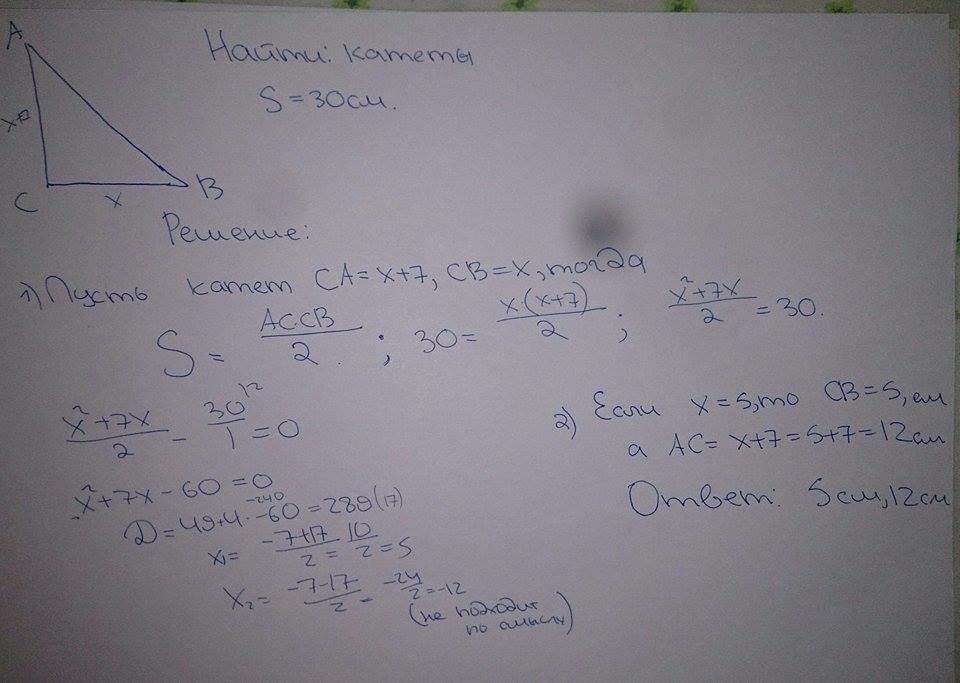 A
Найти: катеты
S = 30см.
x+7
C
x
B
Решение:
1) Пусть катет CA = x+7, CB = x, тогда
S = AC·CB/2. ; 30 = x·(x+7)/2 ; x²+7x/2 = 30.
x²+7x/2 - 30/1 = 0
x²+7x-60=0
-240
D = 49+4·-60 = 289 (17)
x₁ = -7+17/2 = 10/2 = 5
x₂ = -7-17/2 = -24/2 = -12
(не подходит
по смыслу)
2) Если x = 5, то CB = 5, см
а AC = x+7 = 5+7 = 12 см
Ответ: 5см, 12см